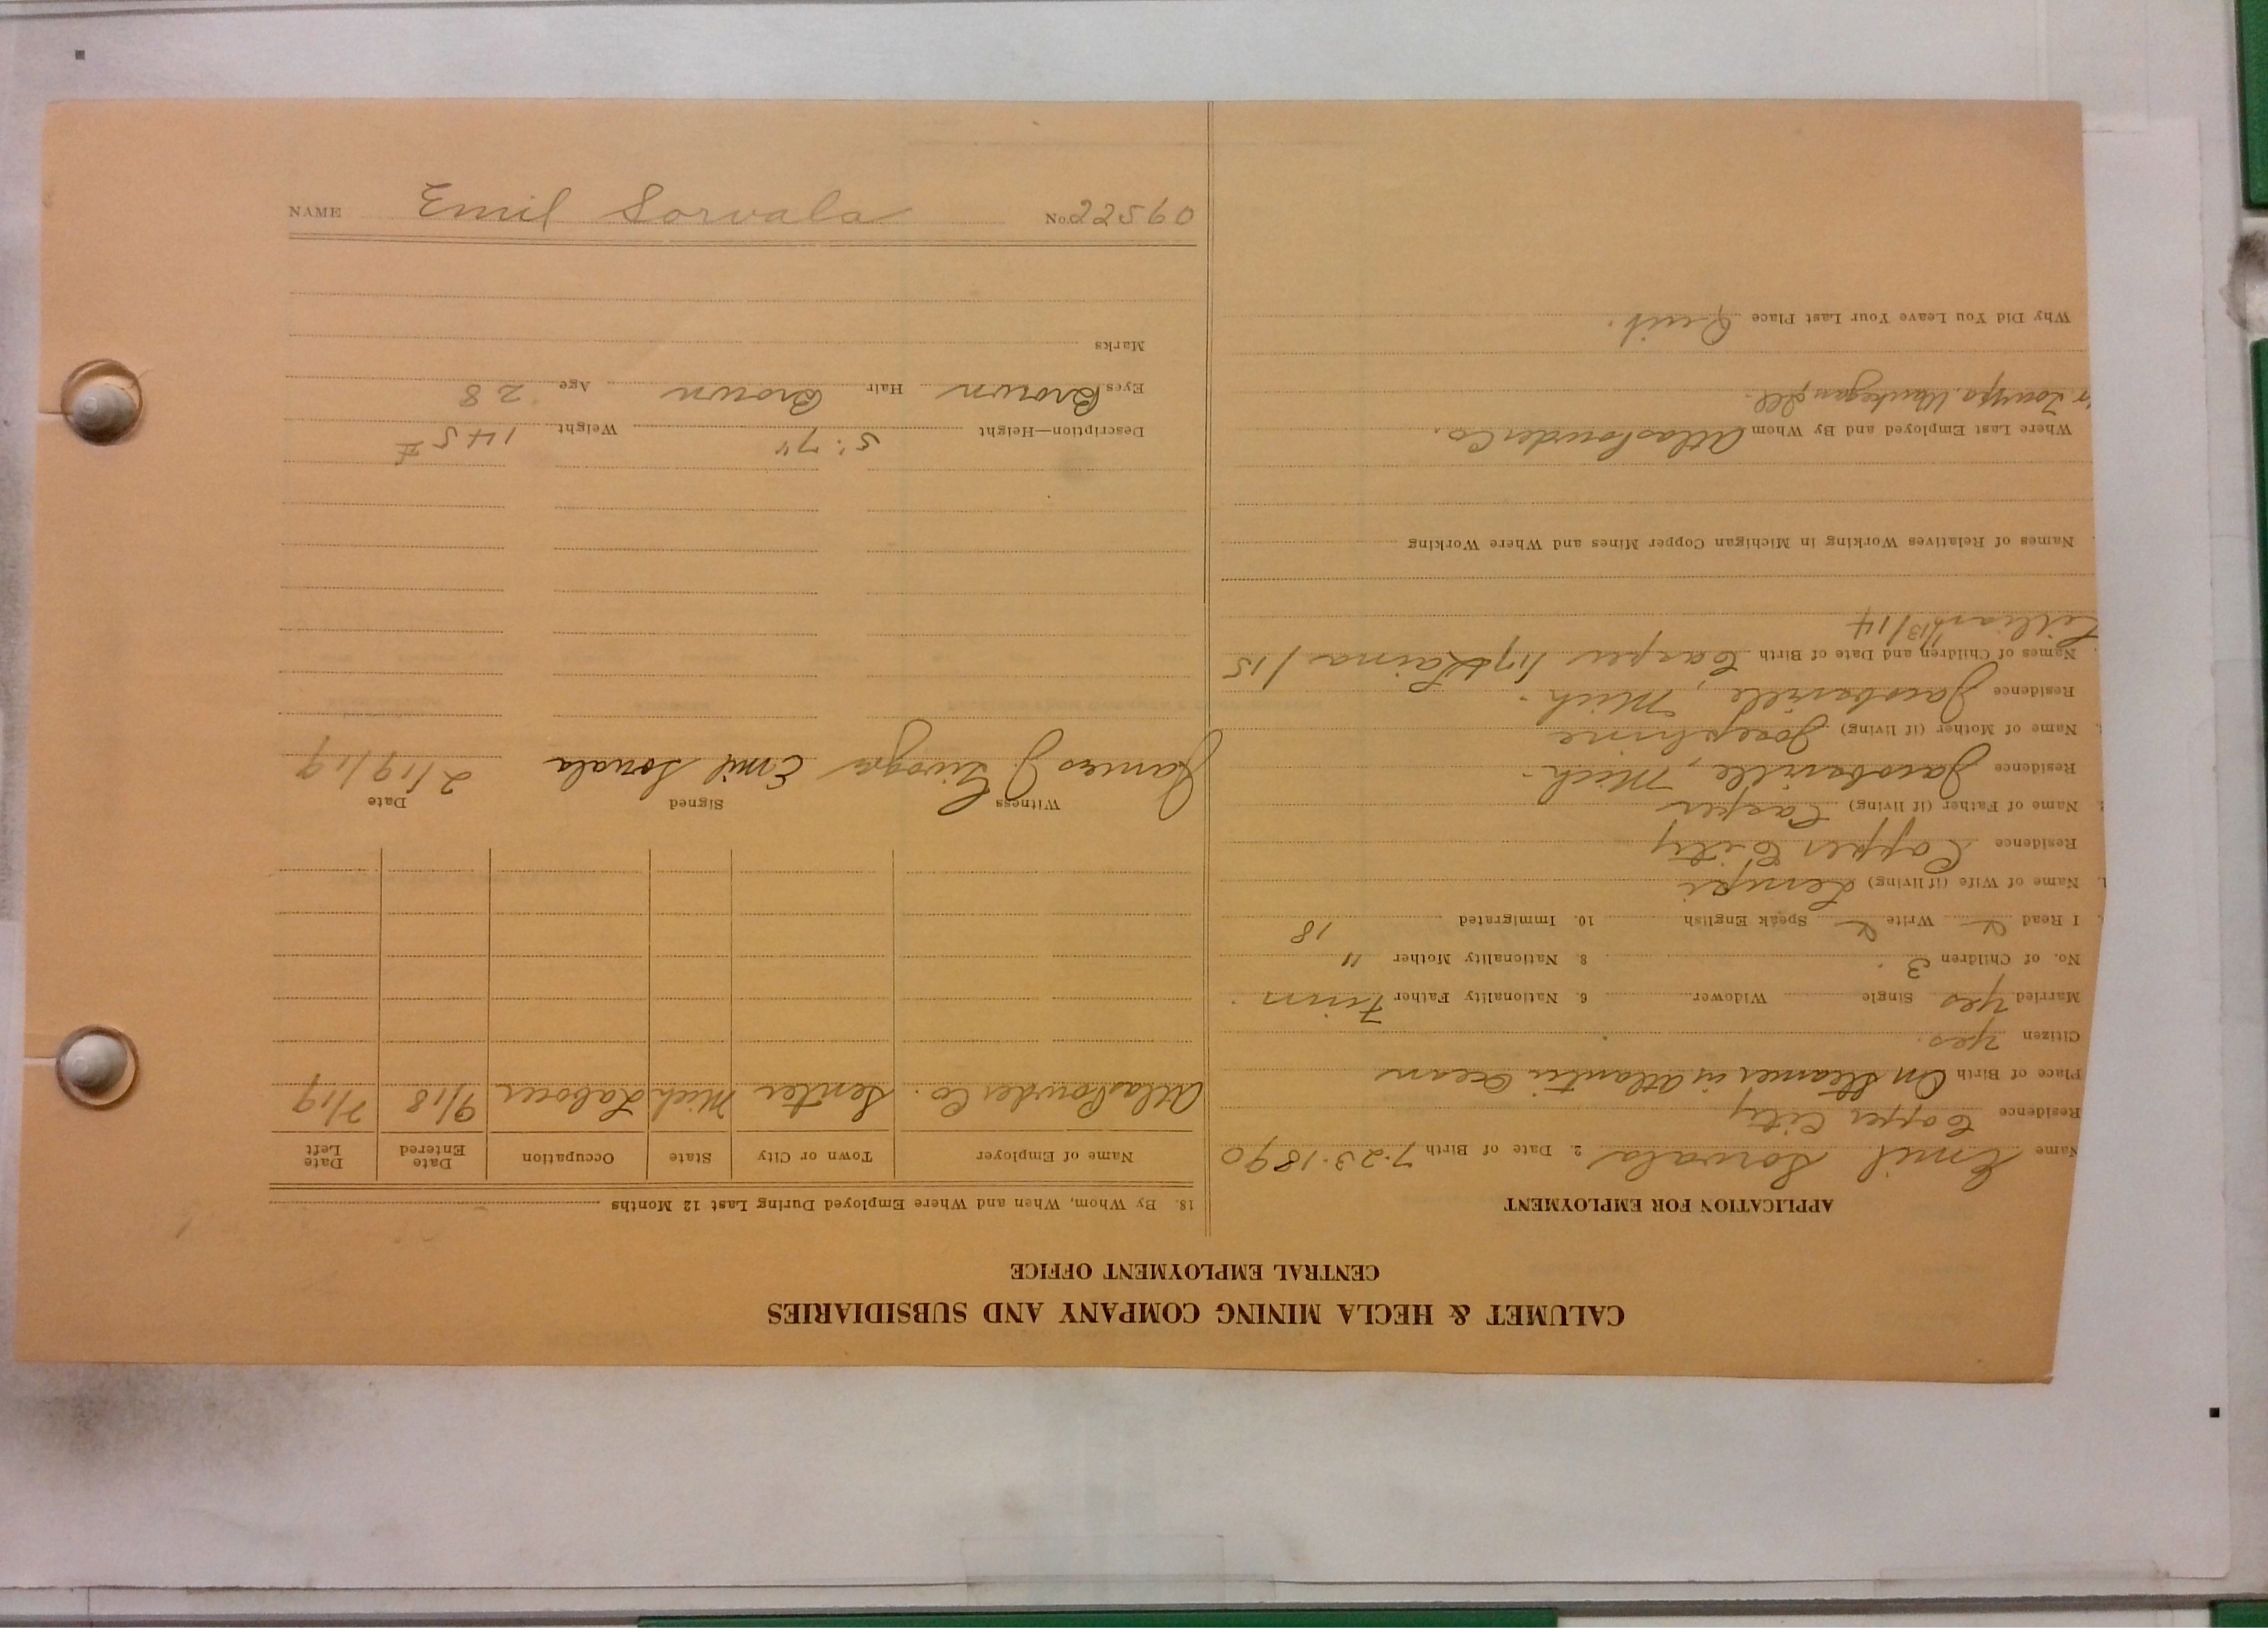 CALUMET & HECLA MINING COMPANY AND SUBSIDIARIES
CENTRAL EMPLOYMENT OFFICE
APPLICATION FOR EMPLOYMENT
Name Emil Sorvala 2. Date of Birth 7-23-1890
Residence Copper City
Place of Birth On Steamer in Atlantic Ocean
Citizen Yes.
Married Yes Single Widower 6. Nationality Father Finn.
No. of Children 3. 8. Nationality Mother "
I Read Write Speak English 10. Immigrated 18
Name of Wife (if living) Lempi
Residence Copper City
Name of Father (if living) Casper
Residence Jacobsville, Mich.
Name of Mother (if living) Josephine
Residence Jacobsville, Mich.
Names of Children and Date of Birth Casper Laina /15
Lillian 1/13/14
Names of Relatives Working in Michigan Copper Mines and Where Working
Where Last Employed and By Whom Atlas Powder Co.
Waukegan Ill.
Why Did You Leave Your Last Place Quit.
18. By Whom, When and Where Employed During Last 12 Months
Name of Employer Town or City State Occupation Date Entered Date Left
Atlas Powder Co. Senter Mich Laborer 9/18 2/19
Witness Signed Date
James J. Emil Sorvala 2/19/19
Description—Height 5' 7" Weight 145 #
Eyes Brown Hair Brown Age 28
Marks
NAME Emil Sorvala No. 22560